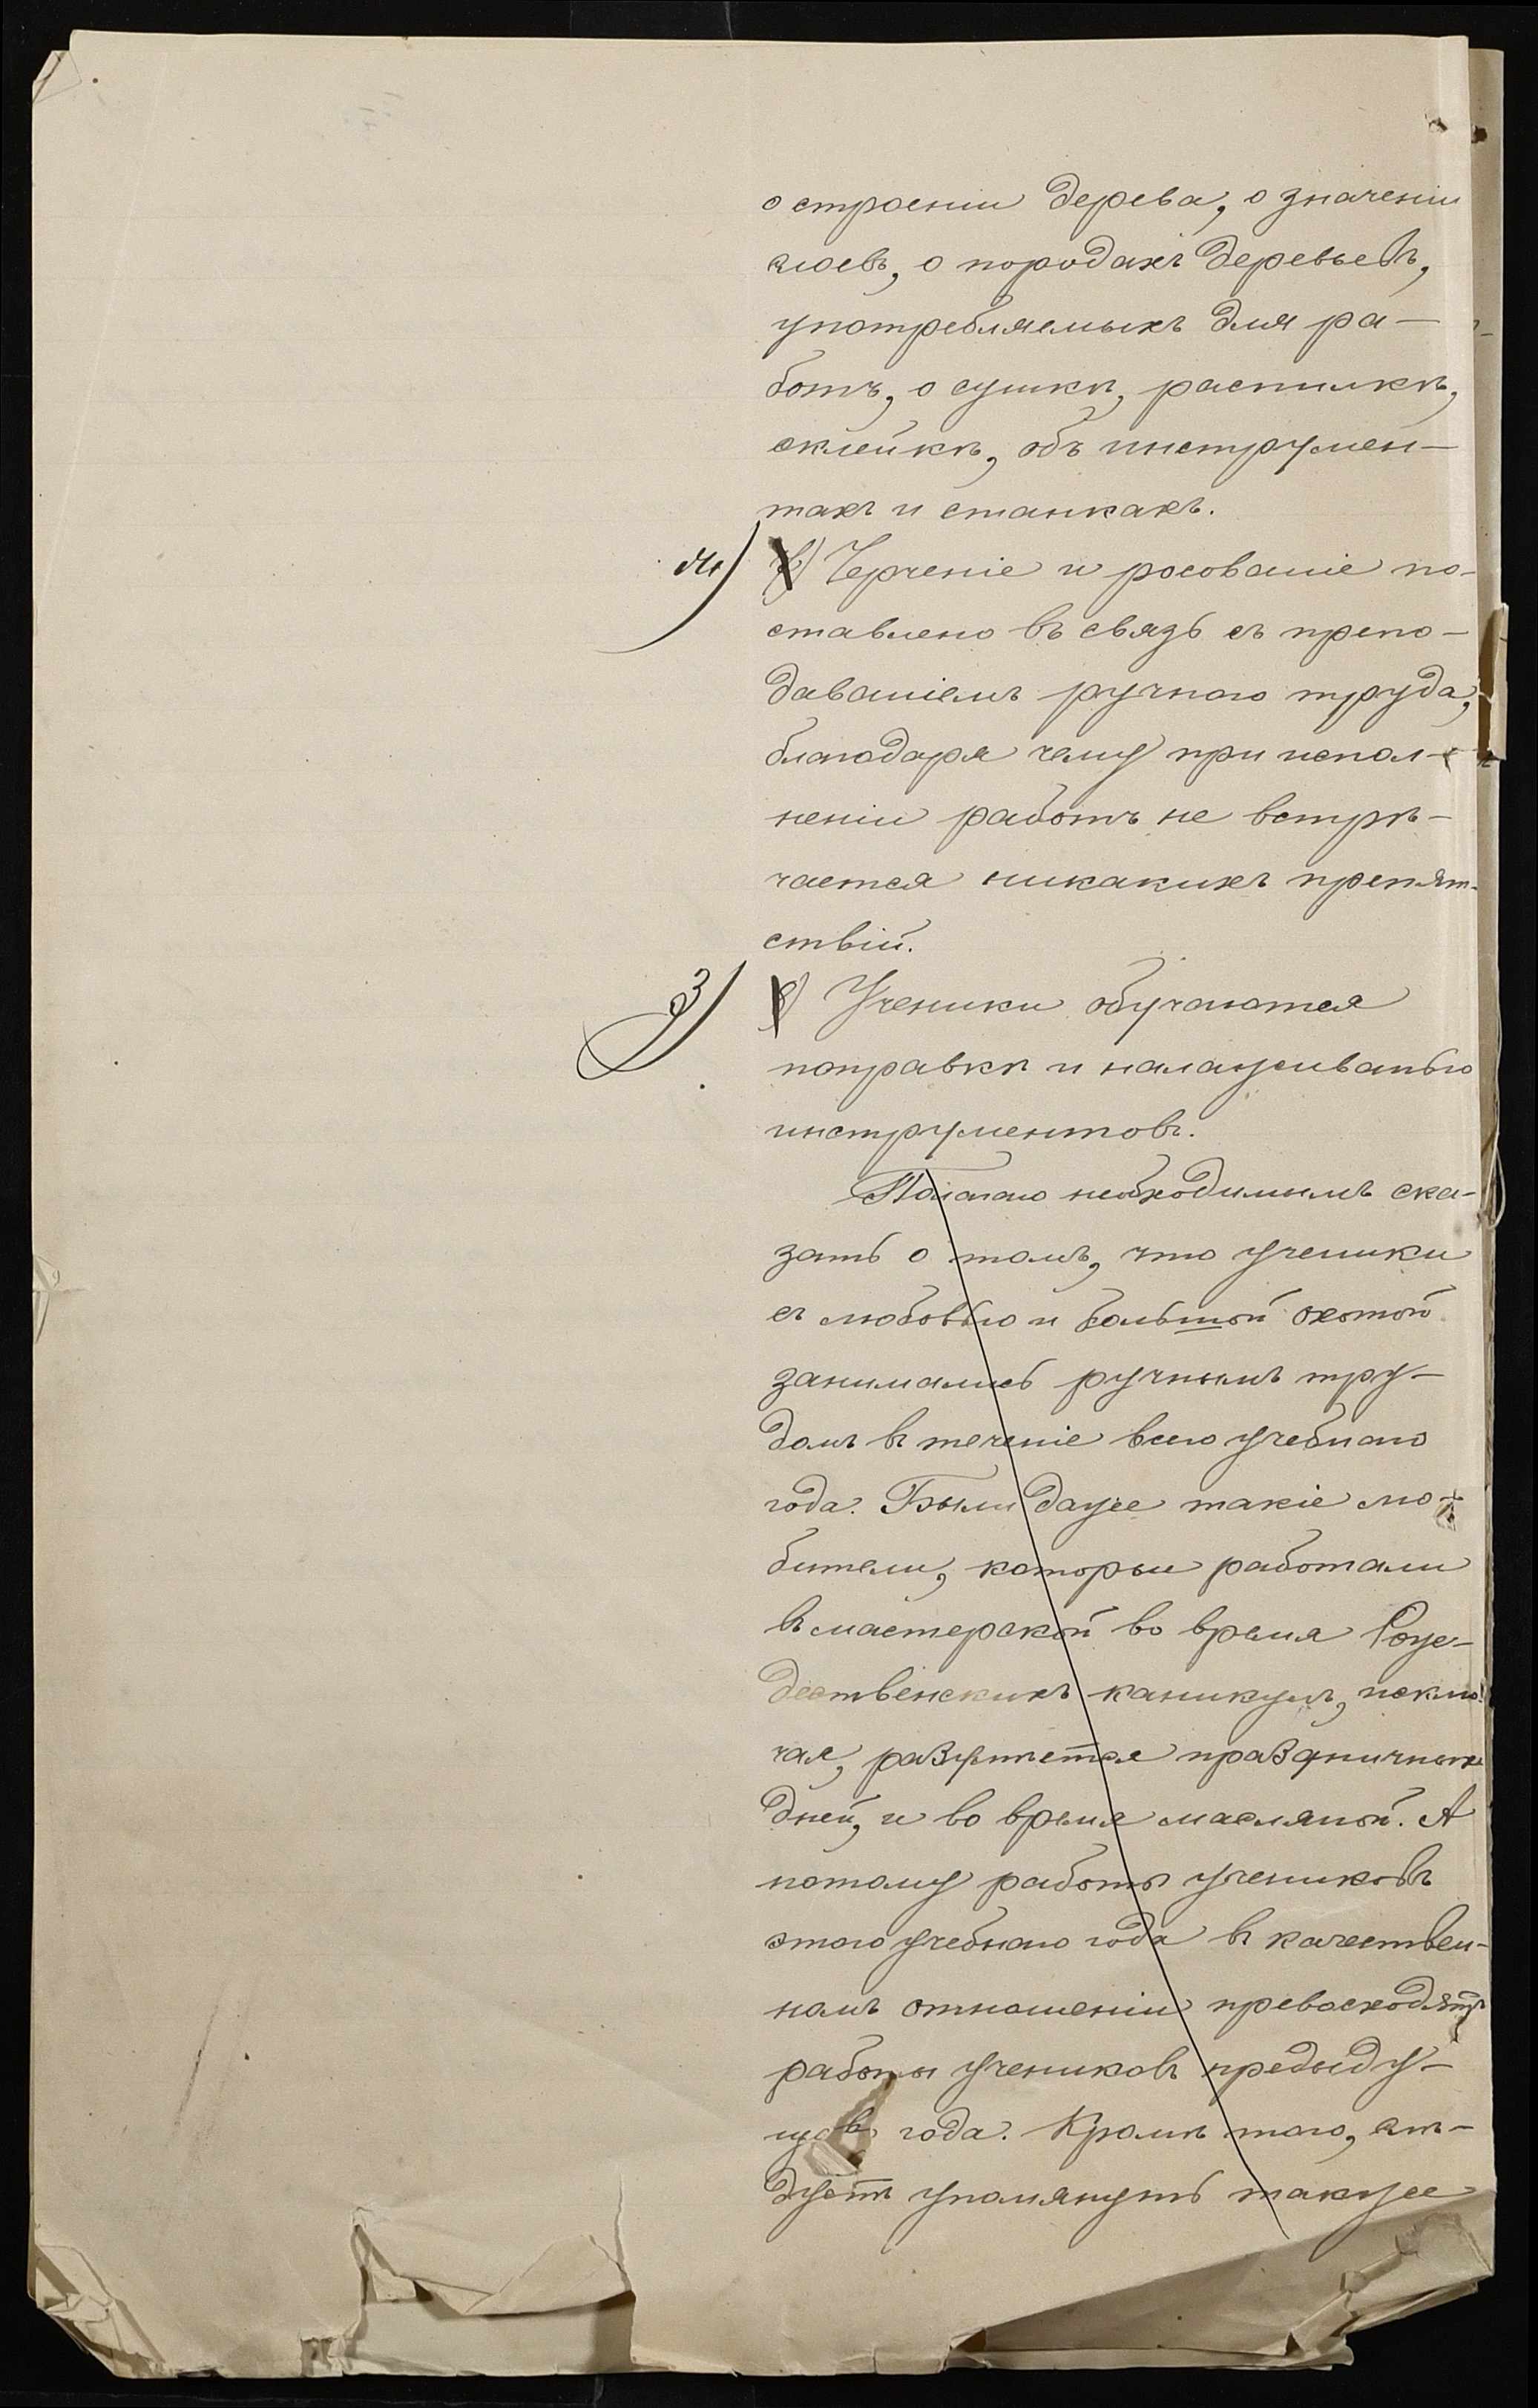 о строеніи дерева, о значеніи
слоевъ, о породахъ деревьевъ,
употребляемыхъ для ра-
ботъ, о сушкѣ, распилкѣ,
склейкѣ, объ инструмен-
тахъ и станкахъ.
Черченіе и росованіе по-
ставлено въ связь съ препо-
даваніемъ ручного труда,
благодаря чему при испол-
неніи работъ не встрѣ-
чается никакихъ препят-
ствій.
З) Ученики обучаются
поправкѣ и налаживанью
инструментовъ.
Полагаю необходимымъ ска-
зать о томъ, что ученики
съ любовью и большой охотой
занимались ручнымъ тру-
домъ въ теченіе всего учебнаго
года. Были даже такіе лю-
бители, которые работали
въ мастерской во время Рож-
дественскихъ каникулъ, исклю-
чая, разумѣется праздничныхъ
дней, и во время масляной. А
потому работы учениковъ
этого учебнаго года въ качествен-
номъ отношеніи превосходятъ
работы учениковъ предыду-
года. Кромѣ того, слѣ-
дуетъ упомянуть также